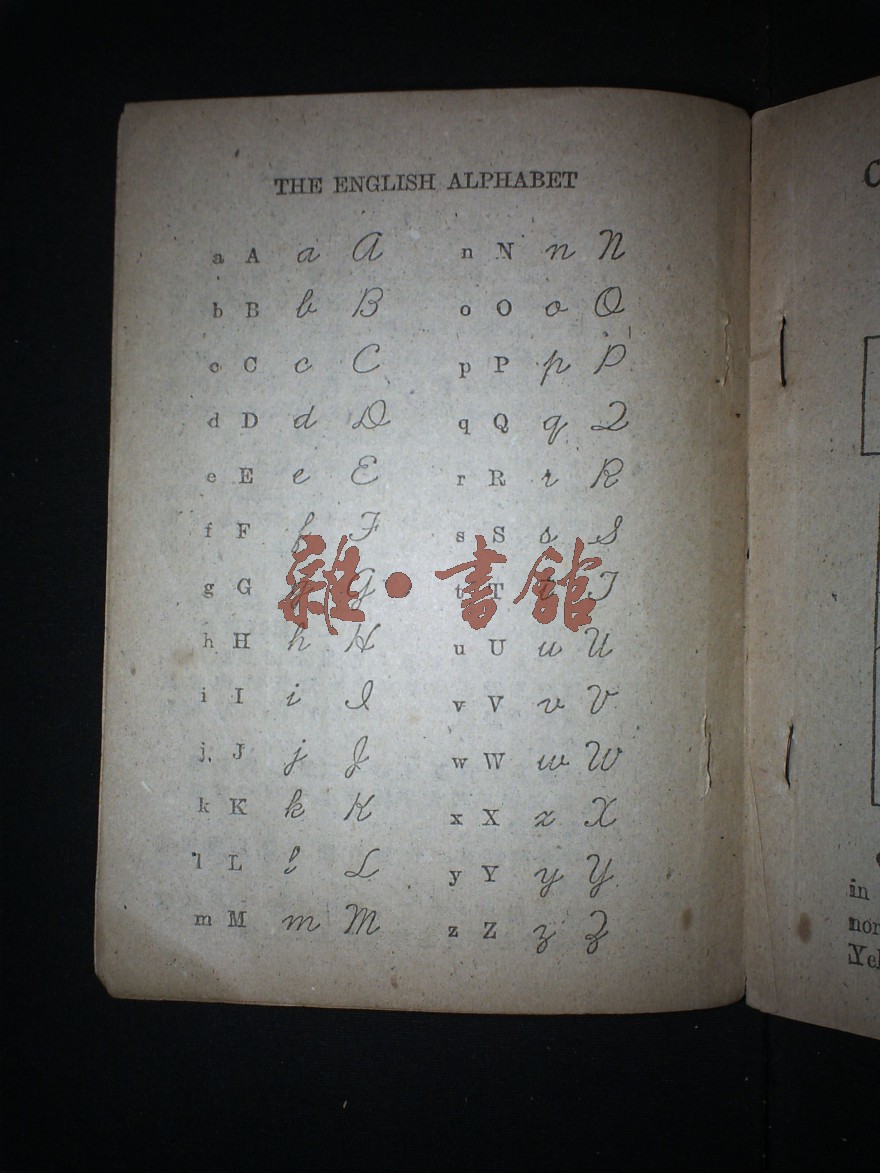 THE ENGLISH ALPHABET
a A a A
b B b B
c C c C
d D d D
e E e E
f F f F
g G g G
h H h H
i I i I
j J j J
k K k K
l L l L
m M m M
n N n N
o O o O
p P p P
q Q q Q
r R r R
s S s S
t T t T
u U u U
v V v V
w W w W
x X x X
y Y y Y
z Z z Z
雜·書館
C
in
nor